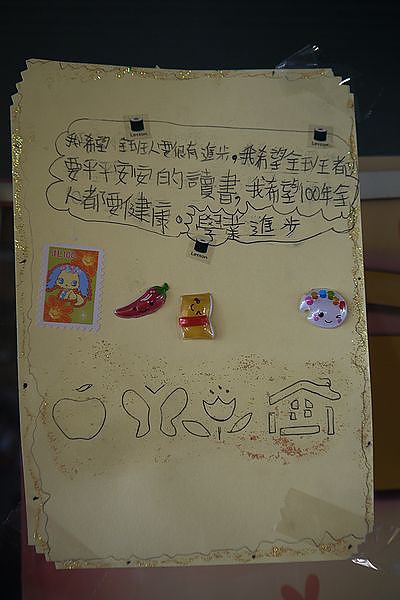 我希望全班人要很有進步，我希望全班都
要平平安安的讀書，我希望100年全
人都要健康。學業進步
Lesson
Lesson
Lesson